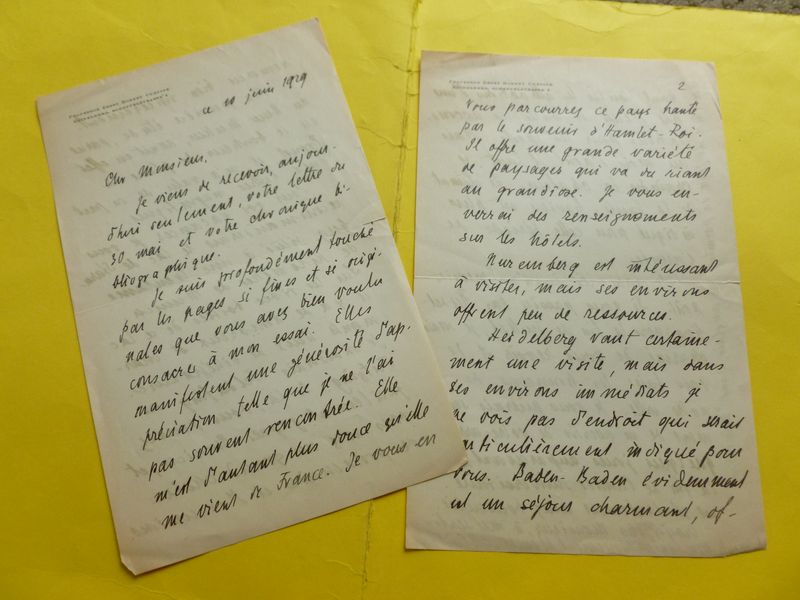 PROFESSOR ERNST ROBERT CURTIUS
ce 10 juin 1929
Cher Monsieur,
Je viens de recevoir, aujour-
d'hui seulement, votre lettre du
30 mai et votre chronique bi-
bliographique.
Je suis profondément touché
par les pages si fines et si origi-
nales que vous avez bien voulu
consacrer à mon essai. Elles
manifestent une générosité d'ap-
préciation telle que je ne l'ai
pas souvent rencontrée. Elle
m'est d'autant plus douce qu'elle
me vient de France. Je vous en
PROFESSOR ERNST ROBERT CURTIUS
2
vous parcourrez ce pays hanté
par le souvenir d'Hamlet-Roi.
Il offre une grande variété
de paysages qui va du riant
au grandiose. Je vous en-
verrai des renseignements
sur les hôtels.
Nuremberg est intéressant
à visiter, mais ses environs
offrent peu de ressources.
Heidelberg vaut certaine-
ment une visite, mais dans
ses environs immédiats je
ne vois pas d'endroit qui serait
particulièrement indiqué pour
vous. Baden-Baden évidemment
est un séjour charmant, of-